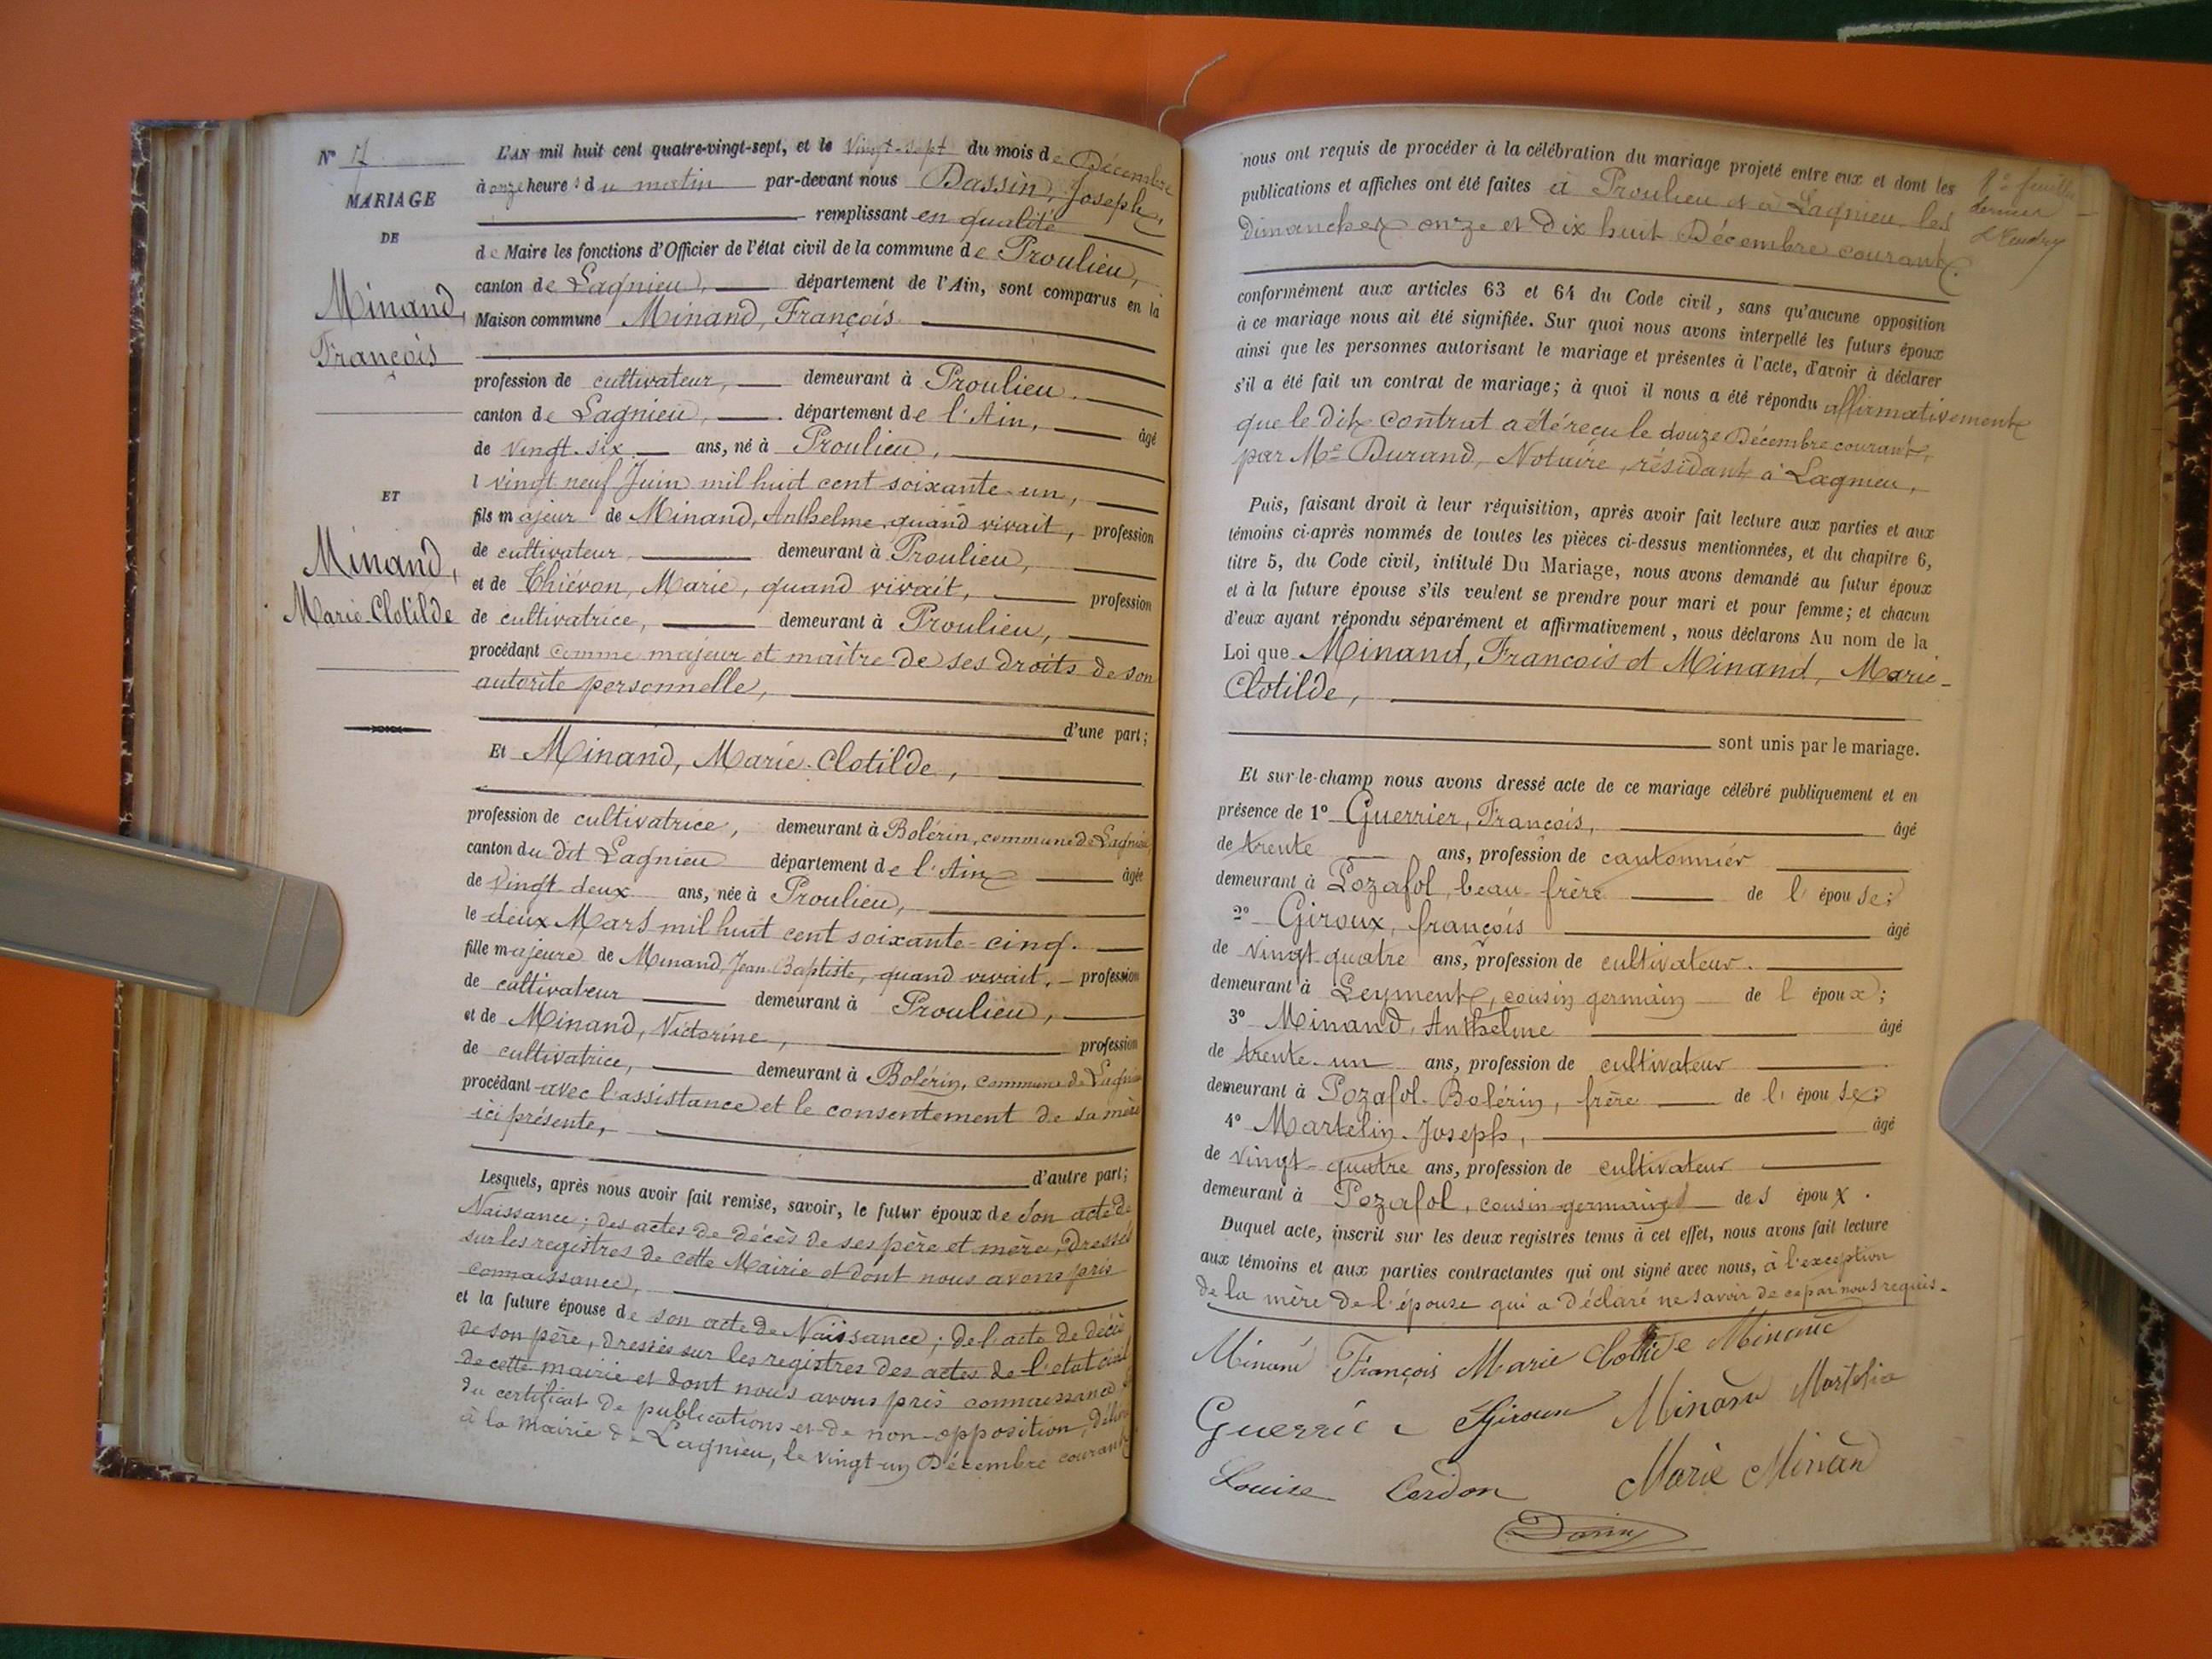 N° 7
MARIAGE
DE
Minand,
François
ET
Minand,
Marie-Clotilde
L'AN mil huit cent quatre-vingt-sept, et le Vingt-sept du mois de Décembre
à onze heures du matin par-devant nous Dassin, Joseph,
remplissant en qualité
de Maire les fonctions d'Officier de l'état civil de la commune de Proulieu,
canton de Lagnieu, département de l'Ain, sont comparus en la
Maison commune Minand, François
profession de cultivateur, demeurant à Proulieu.
canton de Lagnieu, département de l'Ain, âgé
de Vingt-six ans, né à Proulieu,
l vingt neuf Juin mil huit cent soixante-un,
fils majeur de Minand, Anthelme, quand vivait, profession
de cultivateur demeurant à Proulieu,
et de Thiévon, Marie, quand vivait, profession
de cultivatrice, demeurant à Proulieu,
procédant comme majeur et maître de ses droits de son
autorité personnelle,
d'une part;
Et Minand, Marie-Clotilde,
profession de cultivatrice, demeurant à Bolérin, commune de Lagnieu
canton du dit Lagnieu département de l'Ain âgée
de Vingt-deux ans, née à Proulieu,
le deux Mars mil huit cent soixante-cinq.
fille majeure de Minand, Jean-Baptiste, quand vivait, profession
de cultivateur demeurant à Proulieu,
et de Minand, Victorine, profession
de cultivatrice, demeurant à Bolérin, commune de Lagnieu
procédant avec l'assistance et le consentement de sa mère
ici présente,
d'autre part;
Lesquels, après nous avoir fait remise, savoir, le futur époux de son acte de
Naissance; des actes de décès de ses père et mère, dressés
sur les registres de cette Mairie et dont nous avons pris
connaissance,
et la future épouse de son acte de Naissance; de l'acte de décès
de son père, dressés sur les registres des actes de l'état civil
de cette mairie et dont nous avons pris connaissance
du certificat de publications et de non-opposition, délivré
à la Mairie de Lagnieu, le vingt-un Décembre courant
nous ont requis de procéder à la célébration du mariage projeté entre eux et dont les
publications et affiches ont été faites à Proulieu et à Lagnieu les
dimanches onze et dix huit Décembre courant.
feuille
dernier
conformément aux articles 63 et 64 du Code civil, sans qu'aucune opposition
à ce mariage nous ait été signifiée. Sur quoi nous avons interpellé les futurs époux
ainsi que les personnes autorisant le mariage et présentes à l'acte, d'avoir à déclarer
s'il a été fait un contrat de mariage; à quoi il nous a été répondu affirmativement
que le dit contrat a été reçu le douze Décembre courant,
par Me Durand, Notaire, résidant à Lagnieu,
Puis, faisant droit à leur réquisition, après avoir fait lecture aux parties et aux
témoins ci-après nommés de toutes les pièces ci-dessus mentionnées, et du chapitre 6,
titre 5, du Code civil, intitulé Du Mariage, nous avons demandé au futur époux
et à la future épouse s'ils veulent se prendre pour mari et pour femme; et chacun
d'eux ayant répondu séparément et affirmativement, nous déclarons Au nom de la
Loi que Minand, François et Minand, Marie-
Clotilde,
sont unis par le mariage.
Et sur-le-champ nous avons dressé acte de ce mariage célébré publiquement et en
présence de 1° Guerrier, François, âgé
de trente ans, profession de cantonnier
demeurant à Pozafol, beau-frère de l'épouse;
2° Giroux, françois âgé
de vingt quatre ans, profession de cultivateur.
demeurant à Leyment, cousin germain de l époux;
3° Minand, Anthelme âgé
de trente-un ans, profession de cultivateur
demeurant à Pozafol-Bolérin, frère de l'épouse;
4° Martelin-Joseph, âgé
de vingt-quatre ans, profession de cultivateur
demeurant à Pozafol, cousin germain des époux.
Duquel acte, inscrit sur les deux registres tenus à cet effet, nous avons fait lecture
aux témoins et aux parties contractantes qui ont signé avec nous, à l'exception
de la mère de l'épouse qui a déclaré ne savoir de ce par nous requis.
Minand François Marie Clotilde Minand
Guerrie Giroux Minand Martelin
Louise Cerdon Marie Minand
Dassin